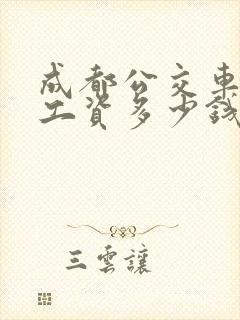 成都公交車
工資多少錢
三雲讓